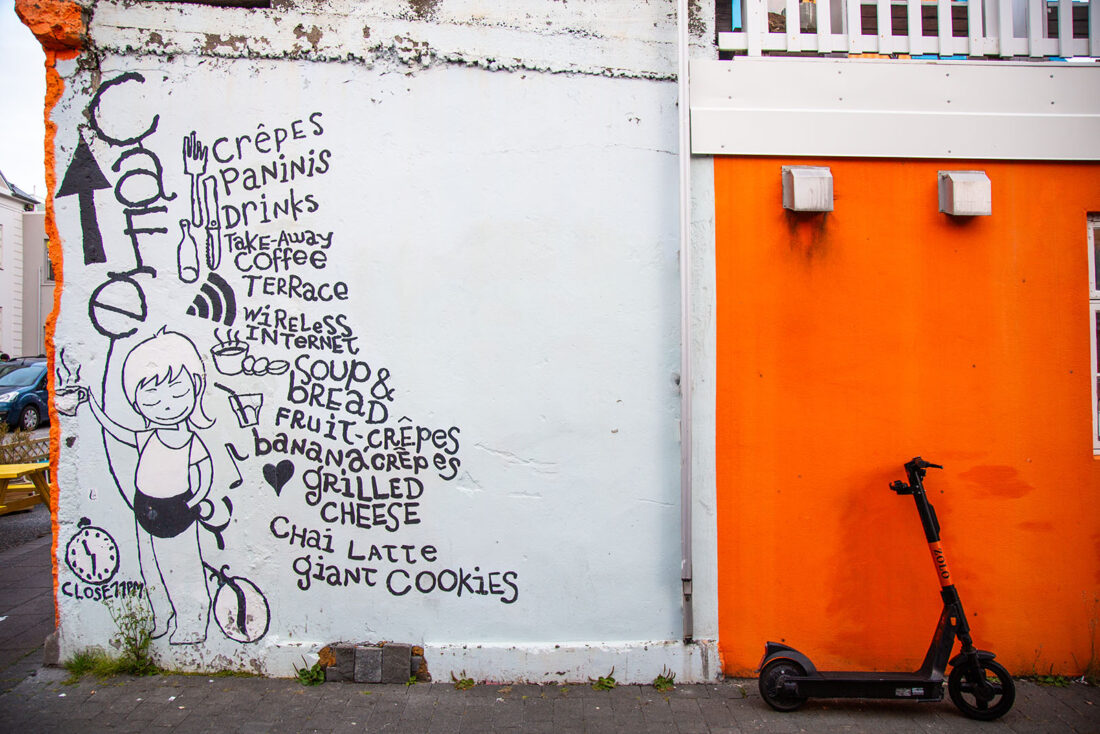 Café
CrêPES
PANiNiS
DriNKS
TAKE-AWAY
COFFee
TERRACE
WiReLeSS
INTerNeT
SOUP &
bREAD
FRUiT-CRÊPES
bANANACRÊPES
GRiLLED
CHEESE
CHAi LATTe
giANT COOKiES
CLOSE 11PM
ZOLO